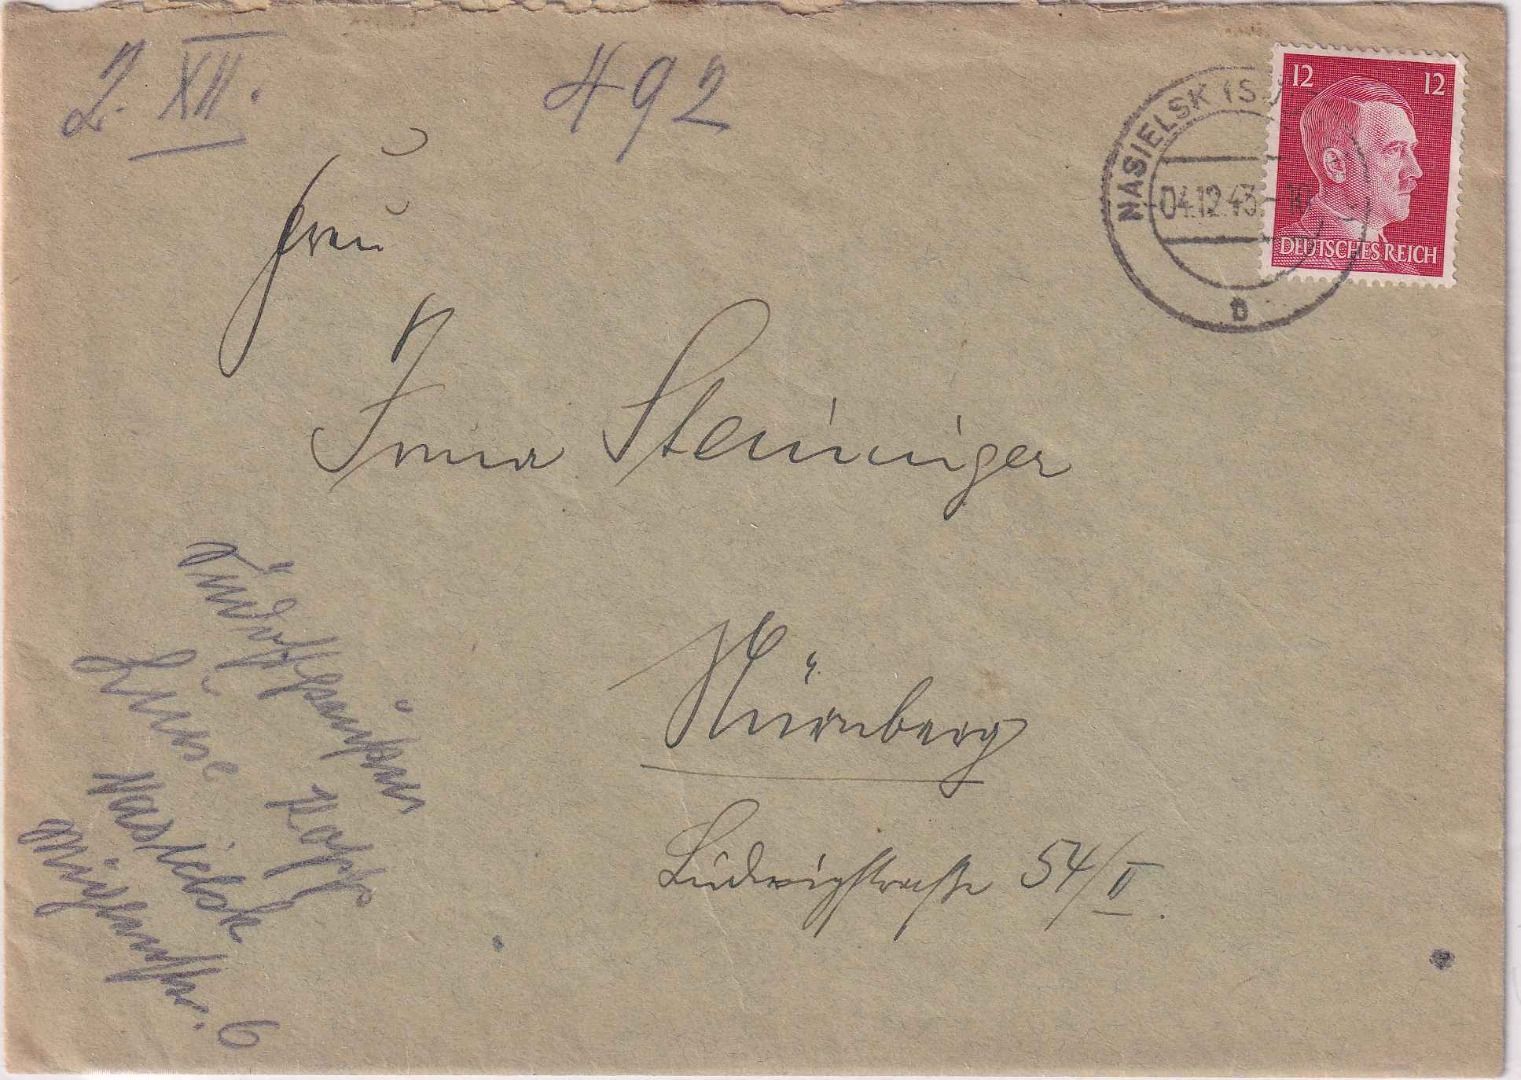 2. XII.
492
NASIELSK (S
04.12.43.-10
b
12 12
DEUTSCHES REICH
Frau
Irma Steininger
Nürnberg
Ludwigstraße 54/II.
Luise Kopp
Nasielsk
6